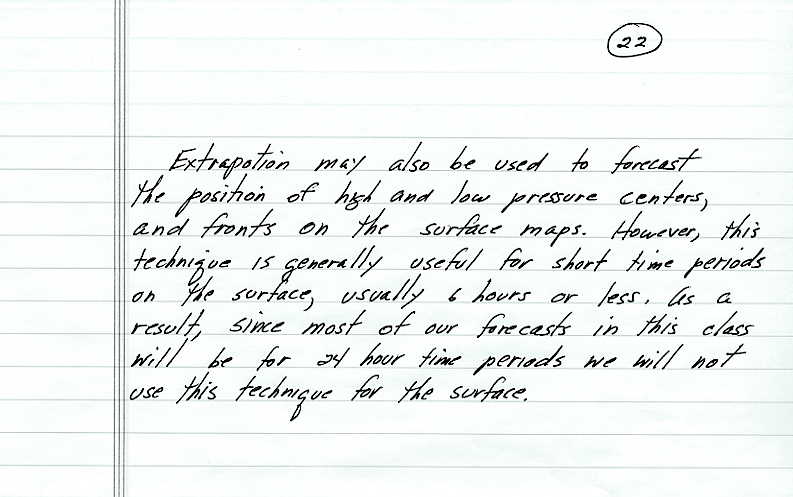 22
Extrapotion may also be used to forecast
the position of high and low pressure centers,
and fronts on the surface maps. However, this
technique is generally useful for short time periods
on the surface, usually 6 hours or less. As a
result, since most of our forecasts in this class
will be for 24 hour time periods we will not
use this technique for the surface.